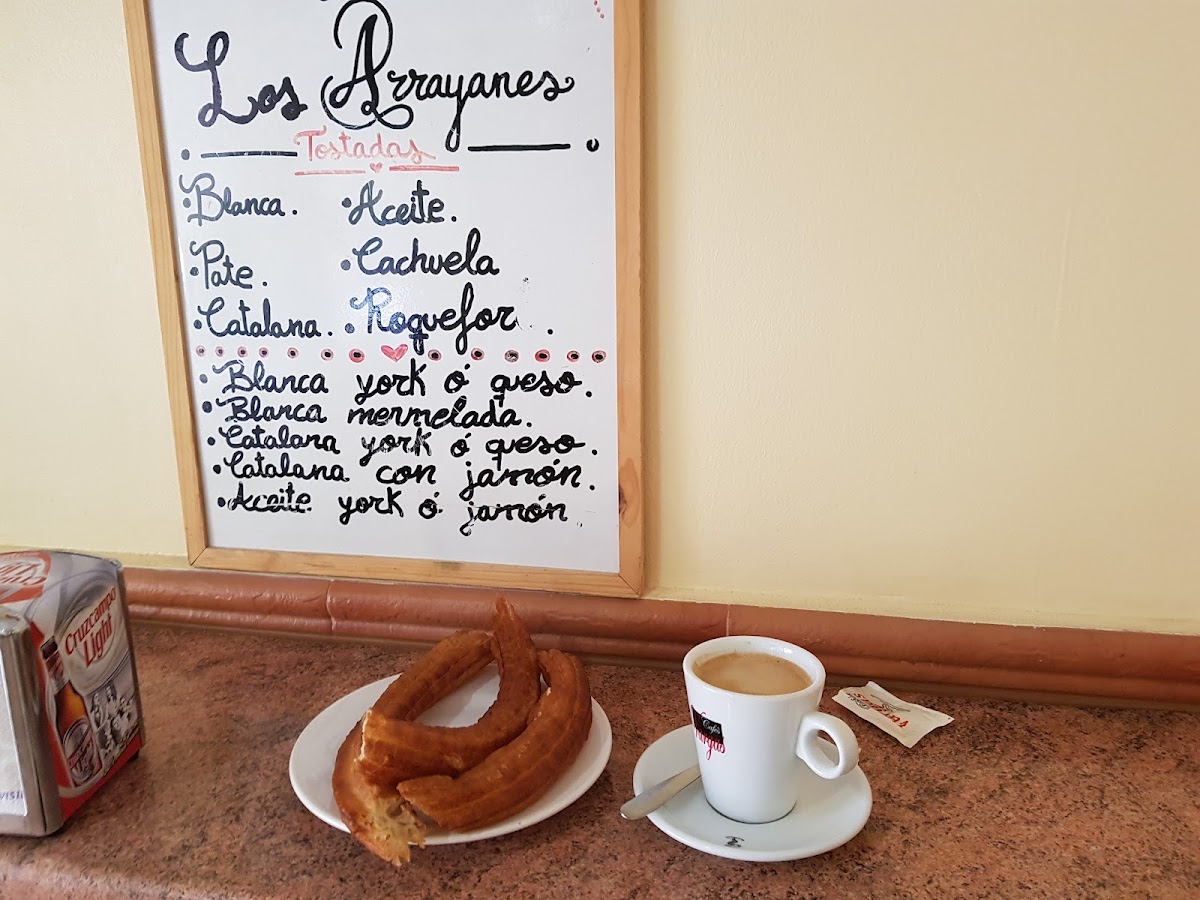 Los Arrayanes
Tostadas
• Blanca. • Aceite.
• Pate. • Cachuela
• Catalana. • Roquefor .
• Blanca york ó queso.
• Blanca mermelada.
• Catalana york ó queso.
• Catalana con jamón.
• Aceite york ó jamón
Cruzcampo
Light
Cafés